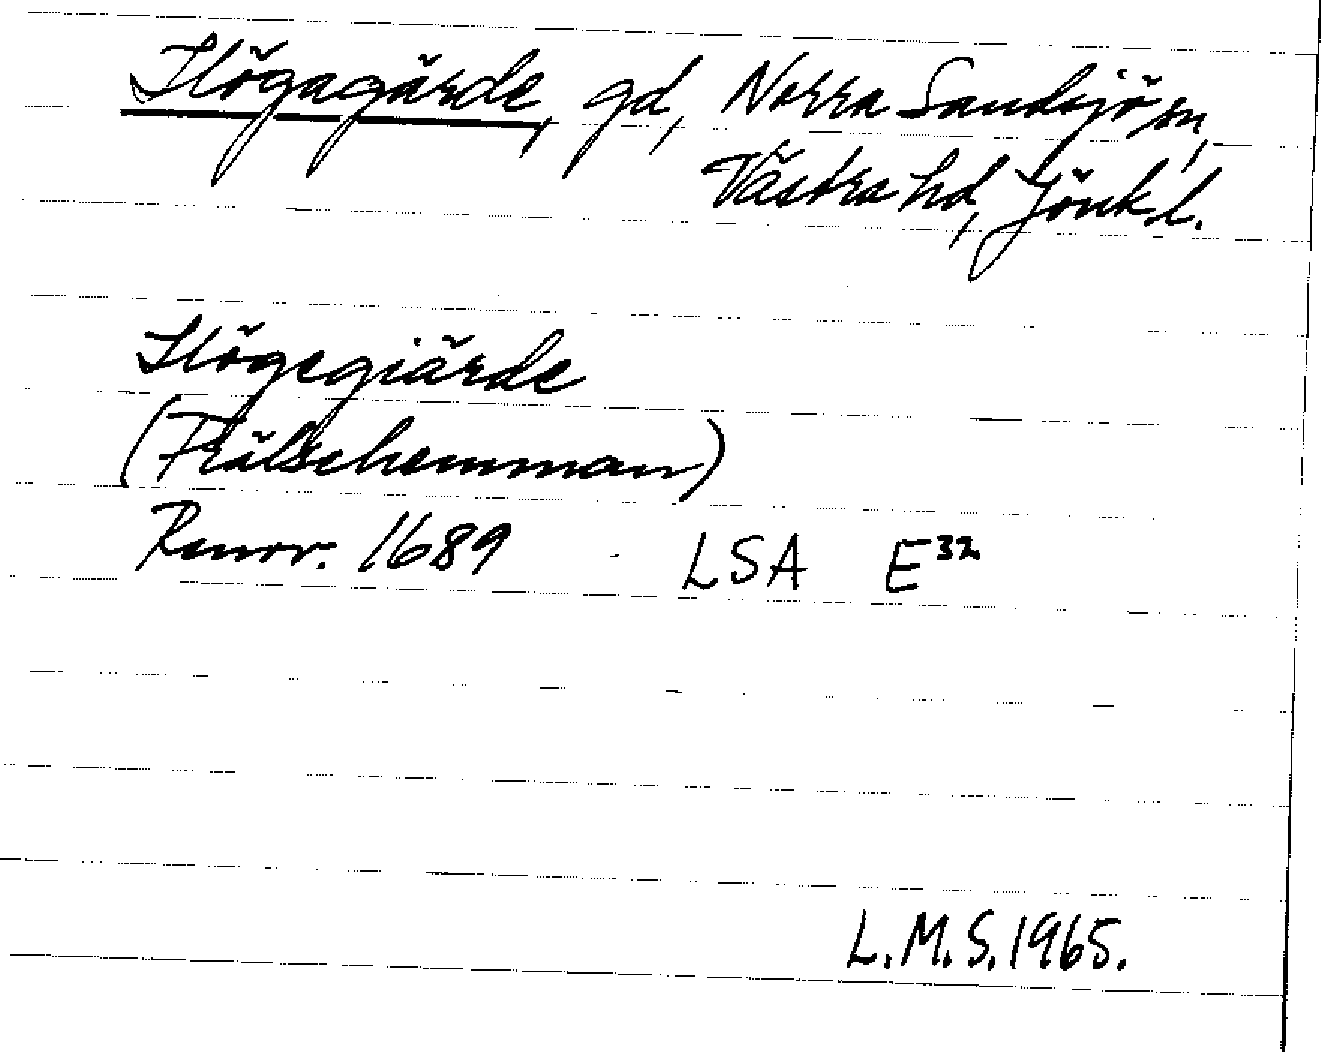 Högagärde, gd, Norra Sandsjö sn,
Västra hd, Jönk.l.
Högegiärde
(Frälsehemman)
Renov. 1689 LSA E³²
L.M.S. 1965.